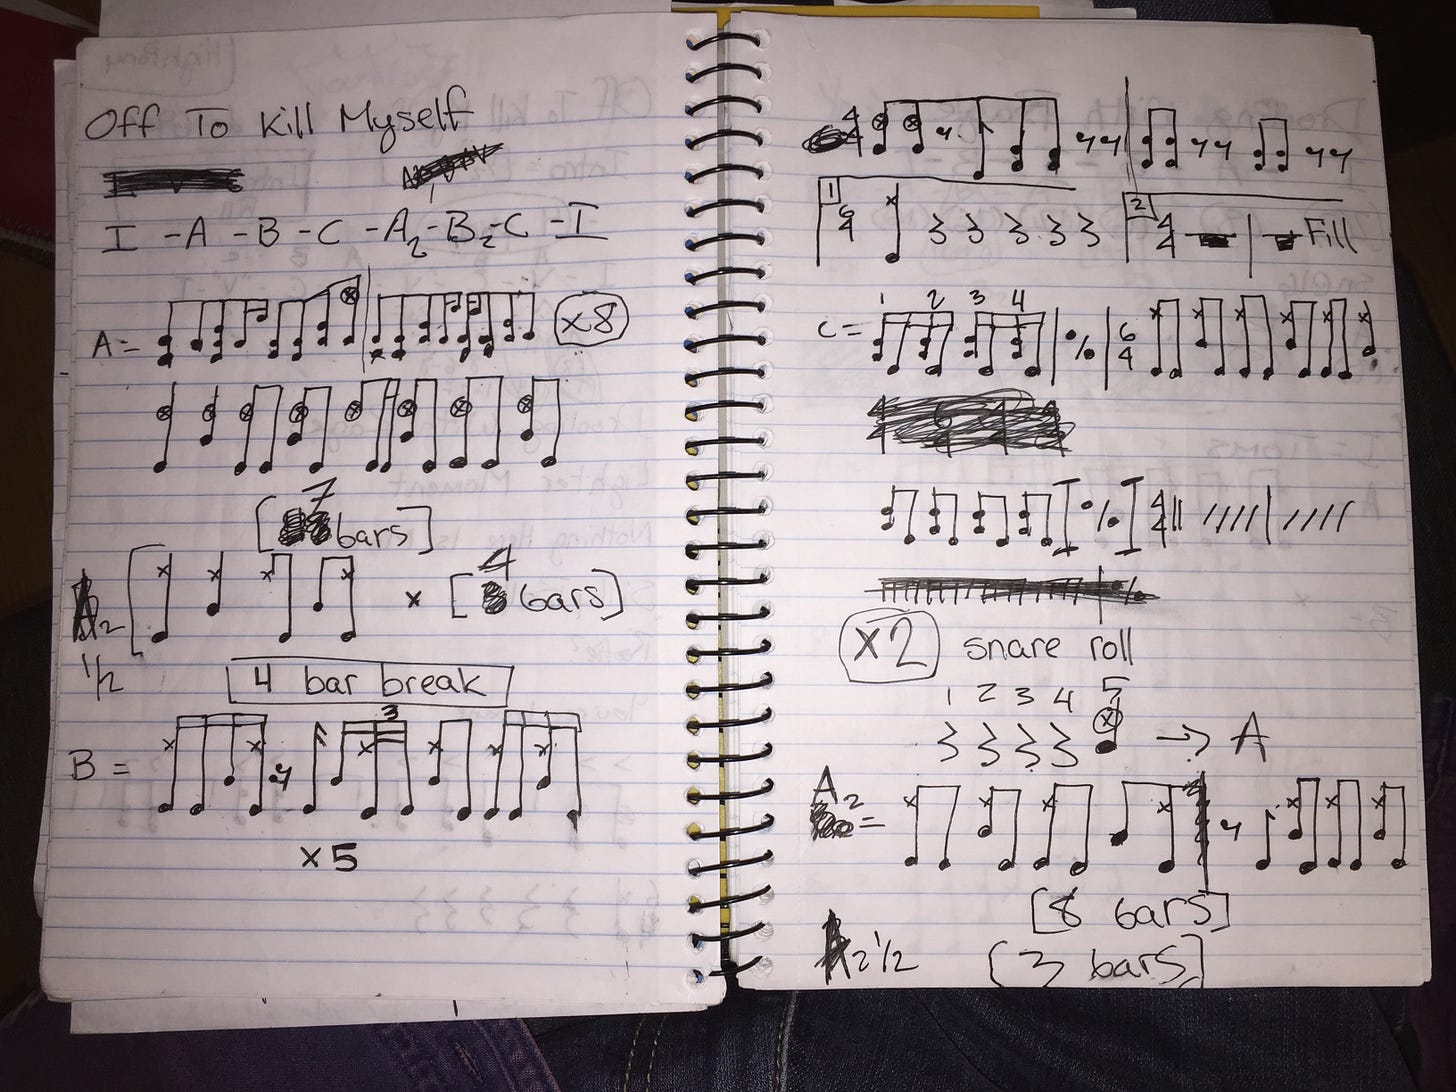 Off To Kill Myself
I - A - B - C - A2 - B2 - C - I
A= x8
[7 bars]
A2 x [4 bars]
1/2
4 bar break
B = 3
x5
4/4
1 6/4 2 4/4 Fill
C= 1 2 3 4 % 6/4
% 4/4 //// ////
x2 snare roll
1 2 3 4 5
→ A
A2 =
[8 bars]
A2 1/2 [3 bars]